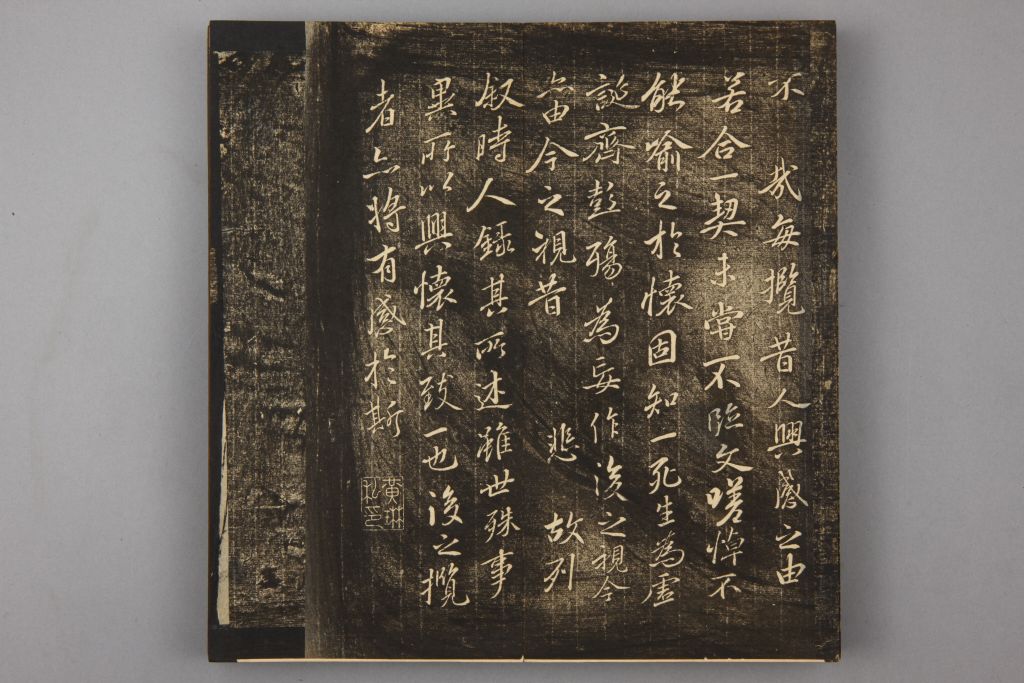 不 哉每攬昔人興感之由
若合一契未甞不臨文嗟悼不
能喻之於懷固知一死生為虛
誕齊彭殤為妄作後之視今
亦由今之視昔 悲 故列
叙時人録其所述雖世殊事
異所以興懷其致一也後之攬
者亦將有感於斯
黃琳私印